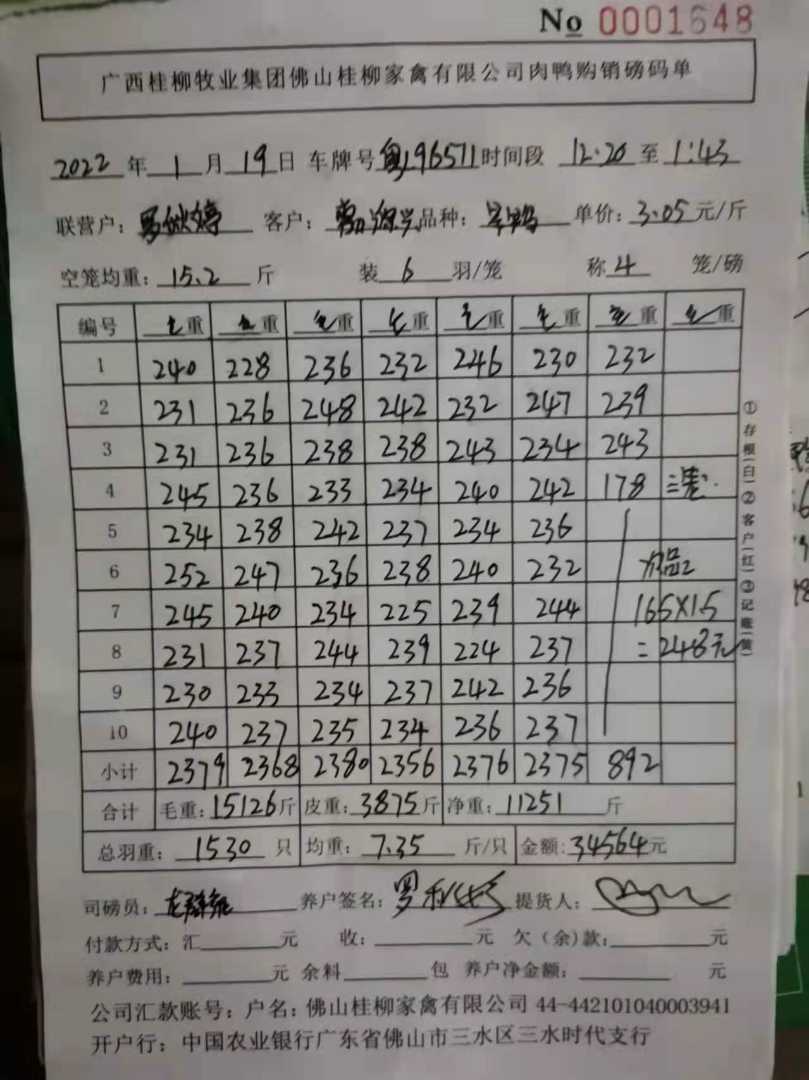 No 0001648
广西桂柳牧业集团佛山桂柳家禽有限公司肉鸭购销磅码单
2022 年 1 月 19 日 车牌号 粤J96571 时间段 12:20 至 1:43
联营户: 罗秋婷 客户: 品种: 单价: 3.05 元/斤
空笼均重: 15.2 斤 装 6 羽/笼 称 4 笼/磅
编号 毛重 毛重 毛重 毛重 毛重 毛重 毛重 毛重
1 240 228 236 232 246 230 232
2 231 236 248 242 232 247 239
3 231 236 238 238 243 234 243
4 245 236 233 234 240 242 178 三笼.
5 234 238 242 237 234 236
6 252 247 236 238 240 232
7 245 240 234 225 239 244 165×1.5
8 231 237 244 239 224 237 =248元
9 230 233 234 237 242 236
10 240 237 235 234 236 237
小计 2379 2368 2380 2356 2376 2375 892
合计 毛重: 15126 斤 皮重: 3875 斤 净重: 11251 斤
总羽重: 1530 只 均重: 7.35 斤/只 金额: 34564 元
司磅员: 养户签名: 罗秋婷 提货人:
付款方式: 汇 元 收: 元 欠(余)款: 元
养户费用: 元 余料 包 养户净金额: 元
公司汇款账号: 户名: 佛山桂柳家禽有限公司 44-442101040003941
开户行: 中国农业银行广东省佛山市三水区三水时代支行
①存根(白)②客户(红)③记账(黄)